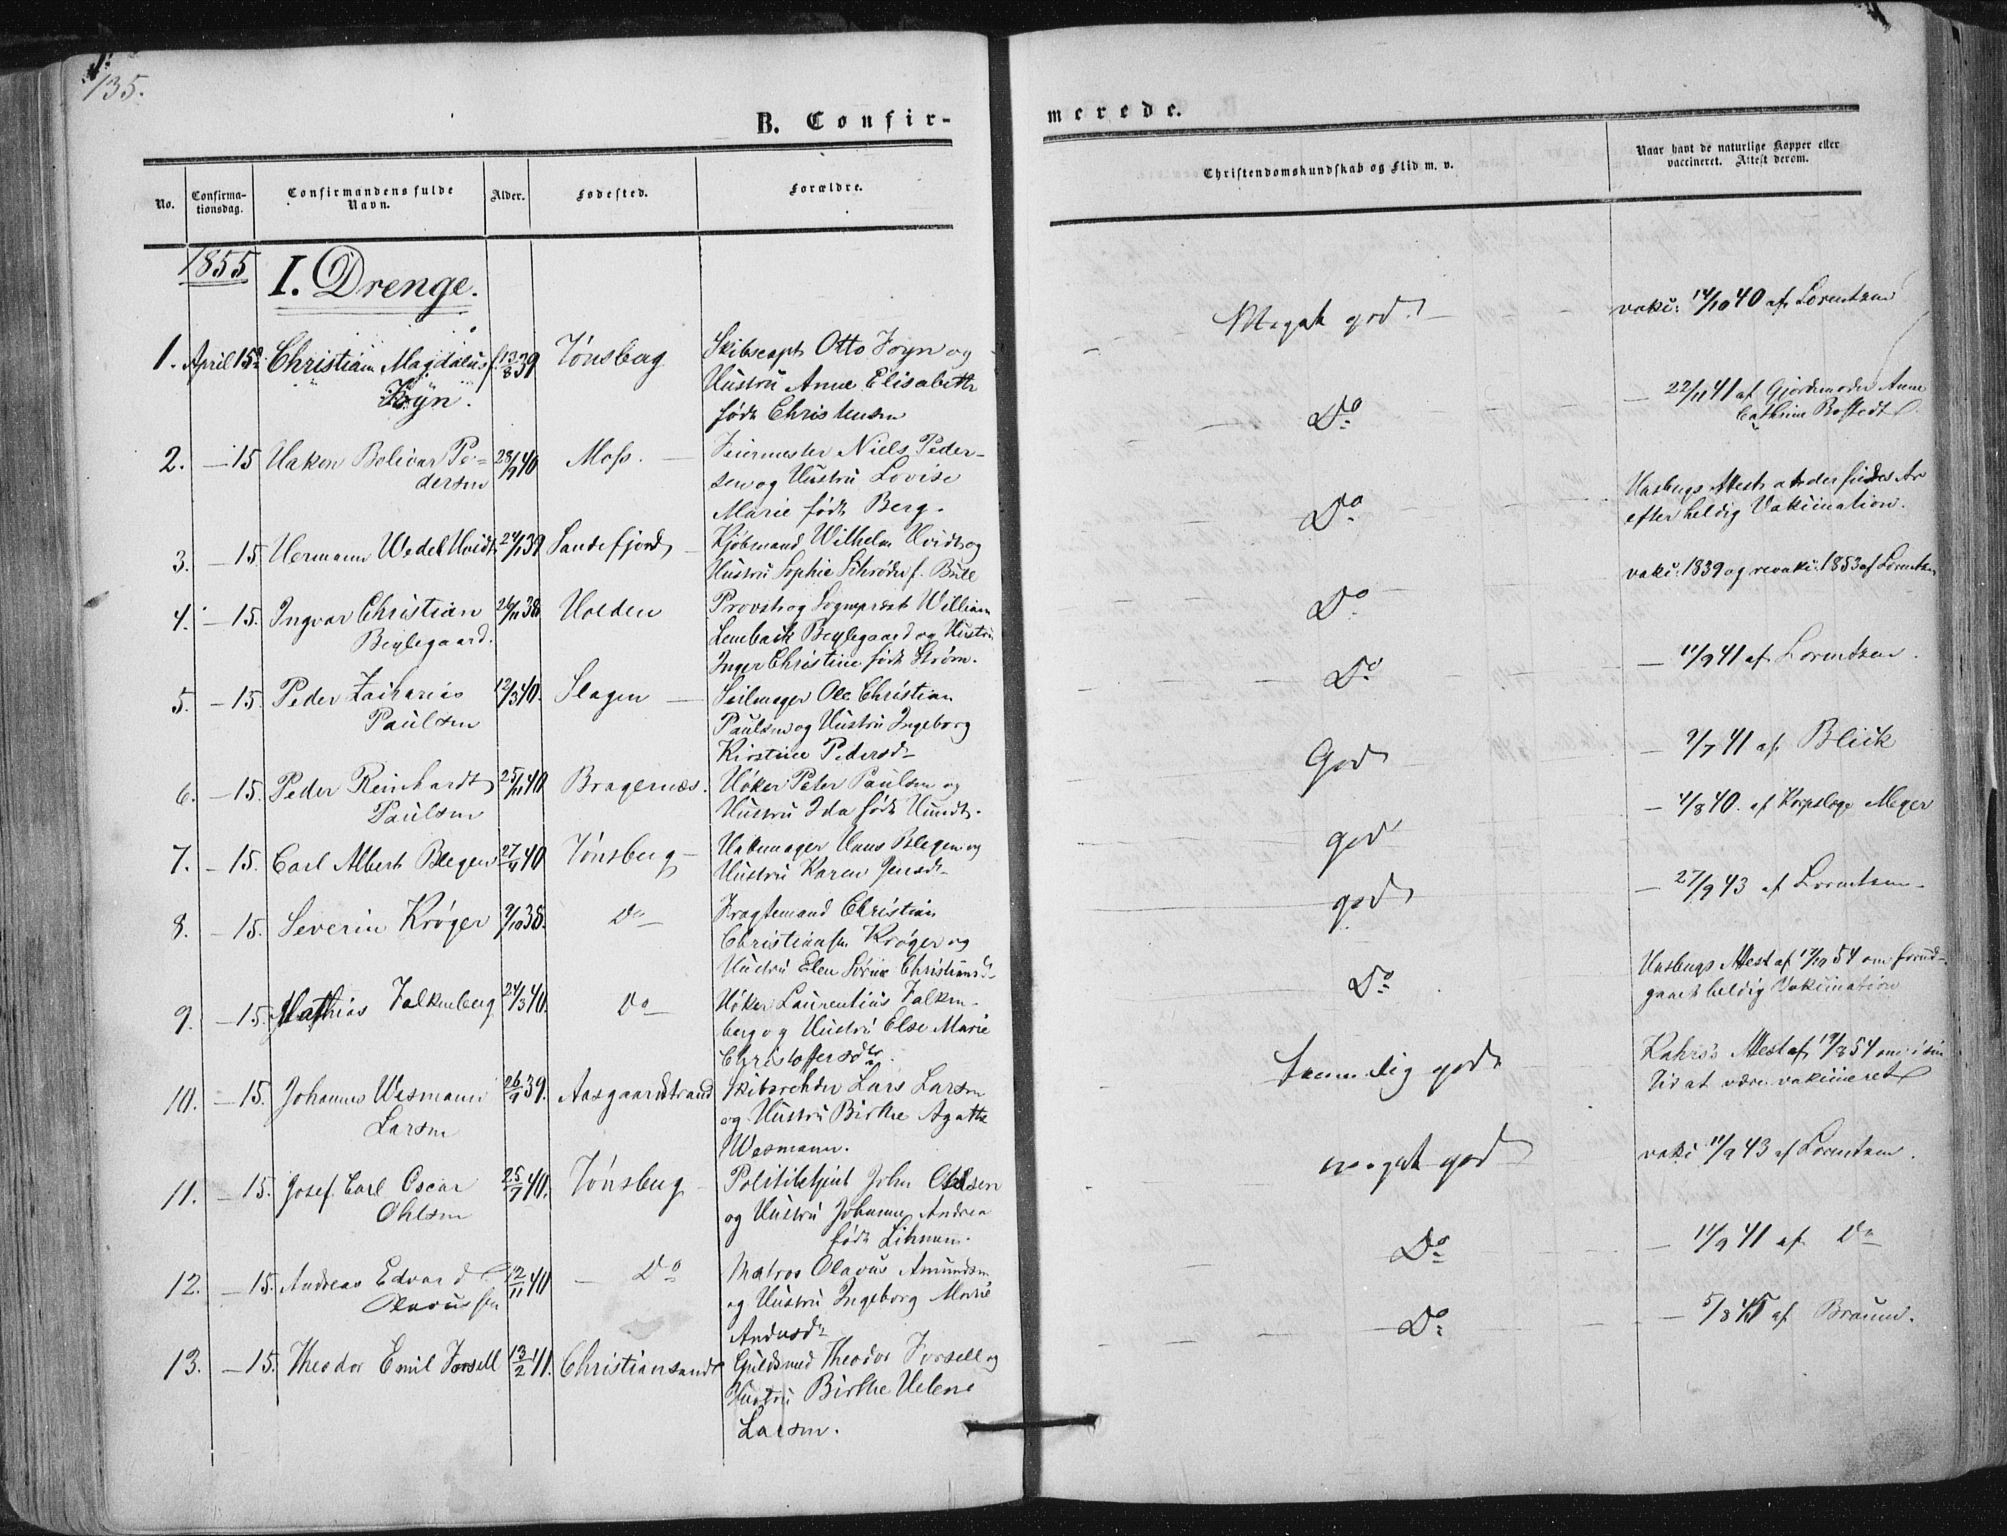 135.
B. Confir-
merede.
No.
Confirma-
tionsdag.
Confirmandens fulde
Navn.
Alder.
Fødested.
Forældre.
Christendomskundskab og Flid m. v.
Naar havt de naturlige Kopper eller
vaccineret. Attest derom.
1855
I. Drenge.
1. April 15de Christian Magdalus f. 13/8 39 Tønsberg Skibscapt Otto Foyn og
Foyn. Hustru Anne Elisabeth
født Christensen
Meget god. vaki: 14/10 40 af Lorentzen
2. — 15 Haken Bolivar Pe- 28/9 40 Moss. — Feiermester Niels Peder-
dersen sen og Hustru Lovise
Marie født Berg.
Do — 22/11 41 af Gjordemoder Anne
Cathrine Bostedt
3. — 15. Hermann Wedel Hvidt 24/1 39 Sandefjord — Kjøbmand Wilhelm Hvidt og
Hustru Sophie Schrøder f. Bull
Do Hasbergs Attest at der findes Ar
efter heldig Vakination.
4. — 15. Ingvar Christian 26/11 38 Holden Provst og Sogneprest William
Beylegaard. Lembach Beylegaard og Hustru
Inger Christine født Strøm.
Do vaki: 1839 og revaki: 1853 af Lorentzen
5. — 15. Peder Zacharias 12/3 40. Slagen — Seilmager Ole Christian
Paulsen Paulsen og Hustru Ingeborg
Kirstine Pedersd
Do — 11/9 41 af Lorentzen.
6. — 15. Peder Reinhardt 25/11 40 Bragernæs. Høker Peter Paulsen og
Paulsen Hustru Ida født Hundt.
God — 9/7 41 af Blick
7. — 15. Carl Albert Blegen 27/4 40 Tønsberg — Hakemager Hans Blegen og
Hustru Karen Jensdt
god — 4/8 40. af Korpslæge Meyer
8. — 15. Severin Krøger 9/10 38. Do — Fragtemand Christian
Christiansen Krøger og
Hustru Elen Sørine Christiansd
god — 27/9 43 af Lorentzen
9. — 15. Mathias Falkenberg 24/3 40. Do — Høker Laurentius Falken-
berg og Hustru Else Marie
Christoffersdtr.
Do Hasbergs Attest af 17/10 54 om forud-
gaaet heldig Vakination
10. — 15. Johannes Wesmann 26/9 39. Aasgaardstrand Skibsreder Lars Larsen
Larsen og Hustru Birthe Agathe
Wesmann.
temmelig god Kahrs's Attest af 19/3 54 om i sin
Tid at være vakineret
11. — 15. Josef Carl Oscar 25/7 40. Tønsberg — Politibetjent John Ohlsen
Ohlsen og Hustru Johanne Andrea
født Lihnum.
meget god vaki 11/9 43 af Lorentzen.
12. — 15. Andreas Edvard 12/11 40 — Do Matros Olavus Amundsen
Olavussen og Hustru Ingeborg Marie
Andersdr
Do — 11/9 41 af Do
13. — 15. Theodor Emil Forsell 13/2 41. Christiansand Guldsmed Theodor Forsell og
Hustru Birthe Helene
Larsen.
Do — 5/8 45 af Braun.